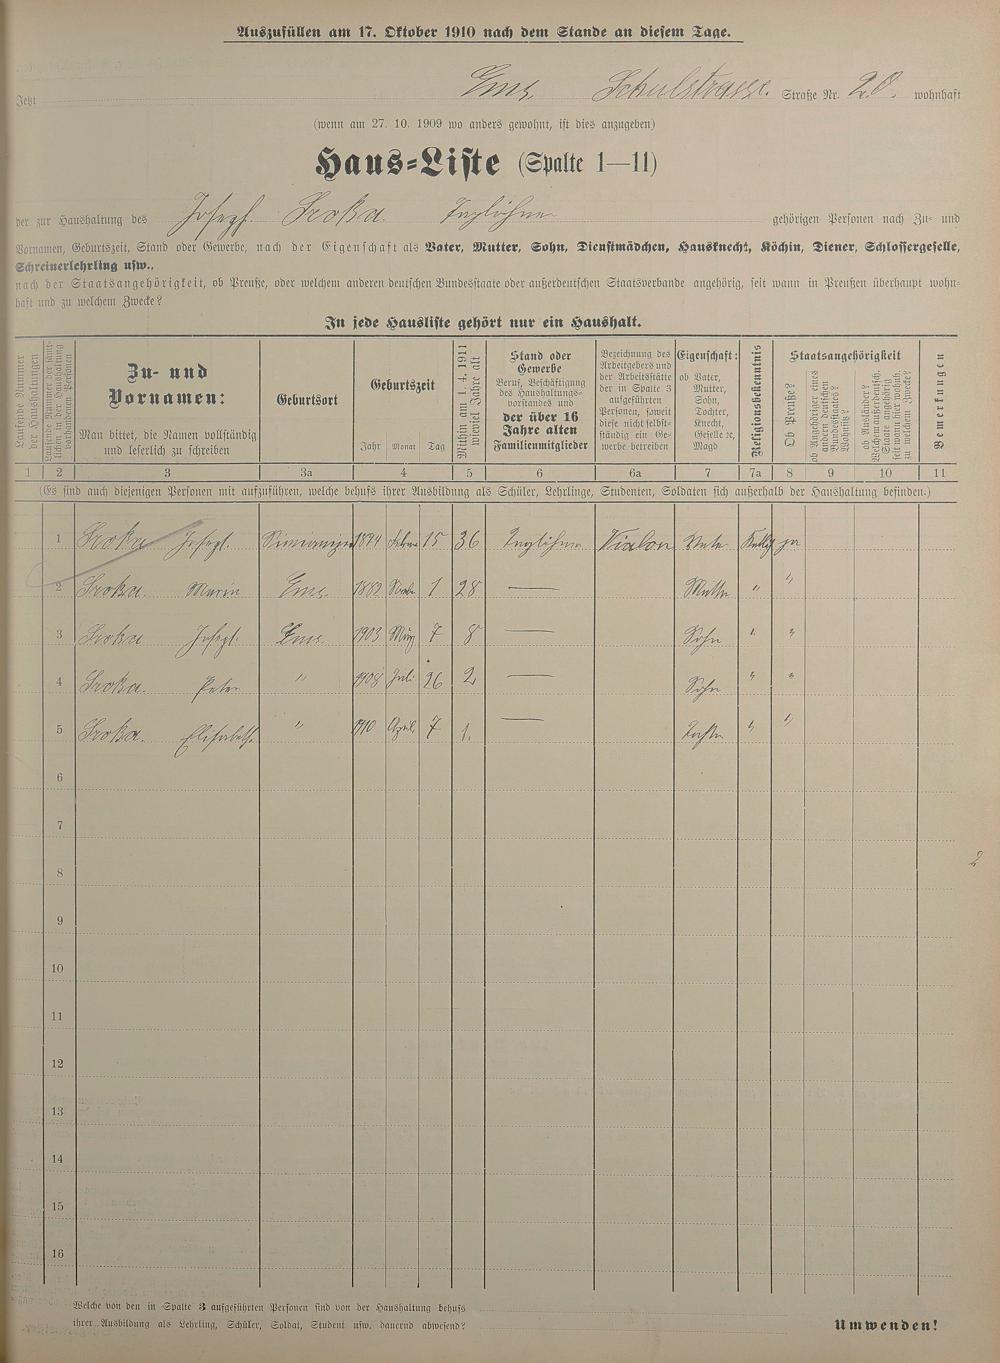 Auszufüllen am 17. Oktober 1910 nach dem Stande an diesem Tage.
Jetzt Ems, Schulstrasse. Straße Nr. 20. wohnhaft
(wenn am 27. 10. 1909 wo anders gewohnt, ist dies anzugeben)
Haus-Liste (Spalte 1—11)
der zur Haushaltung des Joseph Sroka. Taglöhner gehörigen Personen nach Zu- und
Vornamen, Geburtszeit, Stand oder Gewerbe, nach der Eigenschaft als Vater, Mutter, Sohn, Dienstmädchen, Hausknecht, Köchin, Diener, Schlossergeselle,
Schreinerlehrling usw.,
nach der Staatsangehörigkeit, ob Preuße, oder welchem anderen deutschen Bundesstaate oder außerdeutschen Staatsverbande angehörig, seit wann in Preußen überhaupt wohn-
haft und zu welchem Zwecke?
In jede Hausliste gehört nur ein Haushalt.
Laufende Nummer der Haushaltungen
Laufende Nummer der sämtlichen in der Haushaltung vorhandenen Personen
Zu- und
Vornamen:
Man bittet, die Namen vollständig
und leserlich zu schreiben
Geburtsort
Geburtszeit
Jahr Monat Tag
Mithin am 1. 4. 1911 wieviel Jahre alt
Stand oder
Gewerbe
Beruf, Beschäftigung
des Haushaltungs-
vorstandes und
der über 16
Jahre alten
Familienmitglieder
Bezeichnung des
Arbeitgebers und
der Arbeitsstätte
der in Spalte 3
aufgeführten
Personen, soweit
diese nicht selbst-
ständig ein Ge-
werbe betreiben
Eigenschaft:
ob Vater,
Mutter,
Sohn,
Tochter,
Knecht,
Geselle ꝛc,
Magd
Religionsbekenntnis
Staatsangehörigkeit
Ob Preuße?
ob Angehöriger eines andern deutschen Bundesstaates? Wohnsitz?
ob Ausländer? Welchem außerdeutsch. Staate angehörig seit wann hier wohnh. zu welchem Zwecke?
Bemerkungen
1 2 3 3a 4 5 6 6a 7 7a 8 9 10 11
(Es sind auch diejenigen Personen mit aufzuführen, welche behufs ihrer Ausbildung als Schüler, Lehrlinge, Studenten, Soldaten sich außerhalb der Haushaltung befinden.)
1 Sroka Joseph. 1874 15 36 Taglöhner Vater Kath ja
2 Sroka. Maria Ems. 1882 1 28 — Mutter " "
3 Sroka Joseph. Ems. 1903 März 7 8 — Sohn " "
4 Sroka. Peter " 1908 Juli 26 2 — Sohn " "
5 Sroka. Elisabeth. " 1910 April 7 1. — Tochter " "
6
7
2
8
9
10
11
12
13
14
15
16
Welche von den in Spalte 3 aufgeführten Personen sind von der Haushaltung behufs
ihrer Ausbildung als Lehrling, Schüler, Soldat, Student usw. dauernd abwesend?
Umwenden!